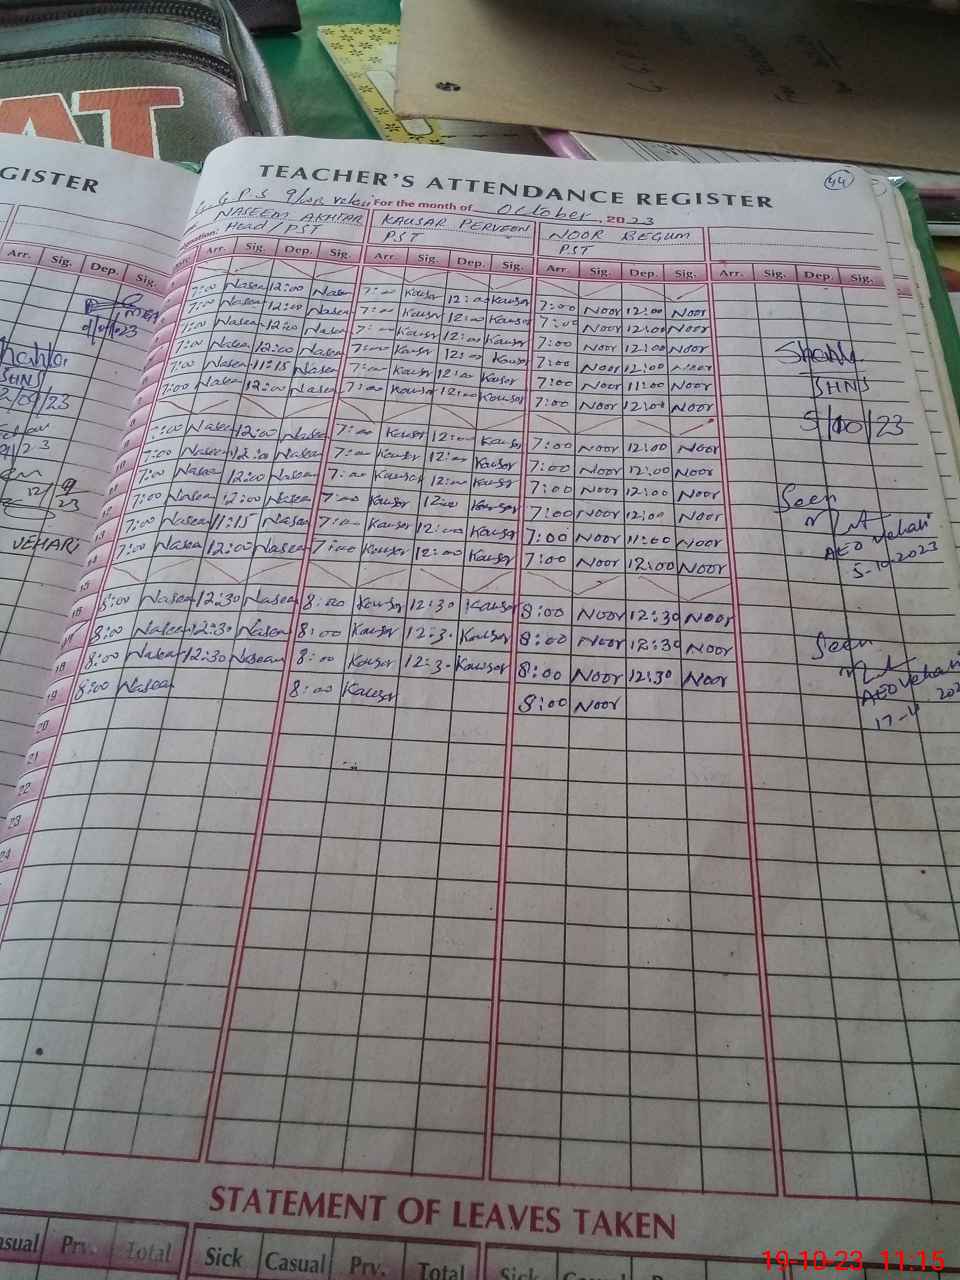 AT
GISTER
TEACHER'S ATTENDANCE REGISTER
44
For the month of October, 2023
NASEEM AKHTAR
KAUSAR PERVEEN
NOOR BEGUM
Head/PST
PST
PST
Arr. Sig. Dep. Sig.
Sig. Dep. Sig. Arr. Sig. Dep. Sig. Arr. Sig. Dep. Sig. Arr. Sig. Dep. Sig.
7:00 Naseem 12:00 Naseem 7:00 Kausar 12:00 Kausar 7:00 Noor 12:00 Noor
7:00 Naseem 12:00 Naseem 7:00 Kausar 12:00 Kausar 7:00 Noor 12:00 Noor
7:00 Naseem 12:00 Naseem 7:00 Kausar 12:00 Kausar 7:00 Noor 12:00 Noor
7:00 Naseem 12:00 Naseem 7:00 Kausar 12:00 Kausar 7:00 Noor 12:00 Noor
7:00 Naseem 11:15 Naseem 7:00 Kausar 12:00 Kausar 7:00 Noor 11:00 Noor
7:00 Naseem 12:00 Naseem 7:00 Kausar 12:00 Kausar 7:00 Noor 12:00 Noor
7:00 Naseem 12:00 Naseem 7:00 Kausar 12:00 Kausar 7:00 Noor 12:00 Noor
7:00 Naseem 12:00 Naseem 7:00 Kausar 12:00 Kausar 7:00 Noor 12:00 Noor
7:00 Naseem 12:00 Naseem 7:00 Kausar 12:00 Kausar 7:00 Noor 12:00 Noor
7:00 Naseem 12:00 Naseem 7:00 Kausar 12:00 Kausar 7:00 Noor 12:00 Noor
7:00 Naseem 11:15 Naseem 7:00 Kausar 12:00 Kausar 7:00 Noor 11:00 Noor
7:00 Naseem 12:00 Naseem 7:00 Kausar 12:00 Kausar 7:00 Noor 12:00 Noor
15
16 8:00 Naseem 12:30 Naseem 8:00 Kausar 12:30 Kausar 8:00 Noor 12:30 Noor
17 8:00 Naseem 12:30 Naseem 8:00 Kausar 12:30 Kausar 8:00 Noor 12:30 Noor
18 8:00 Naseem 12:30 Naseem 8:00 Kausar 12:30 Kausar 8:00 Noor 12:30 Noor
19 8:00 Naseem 8:00 Kausar 8:00 Noor
20
21
22
23
24
SHNS
5/10/23
Seen
AEO Vehari
5-10-2023
Seen
AEO Vehari
SHNS
VEHARI
STATEMENT OF LEAVES TAKEN
asual Prv. Total Sick Casual Prv. Total Sick
19-10-23 11:15